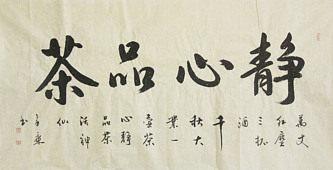 静心品茶
萬丈
红塵
三杯
酒
千
秋大
業一
壺茶
心静
品茶
活神
仙